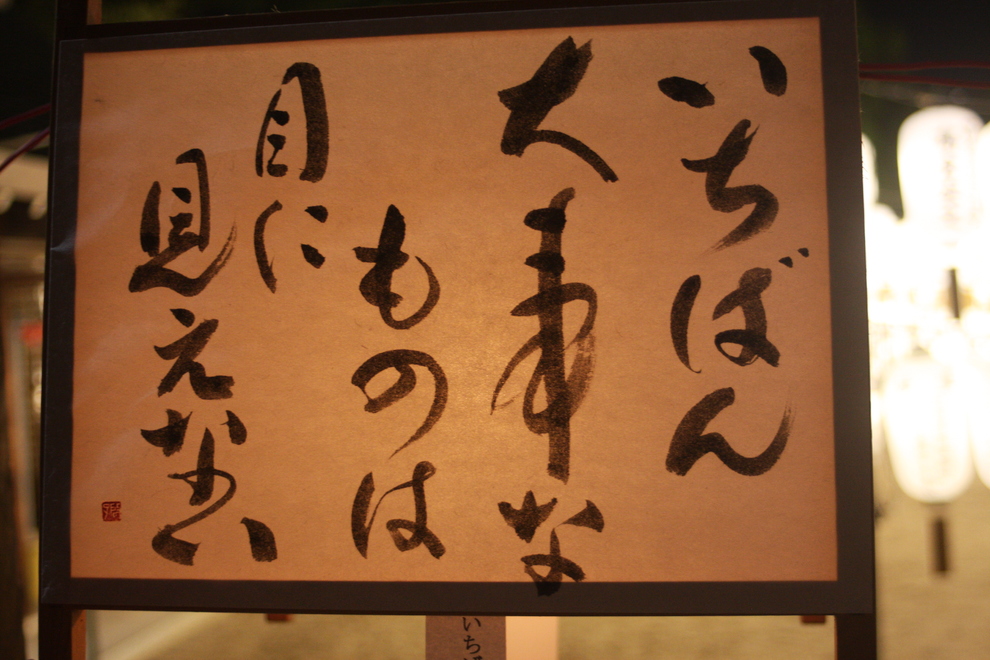 いちばん
大事な
ものは
目に
見えない
いちば